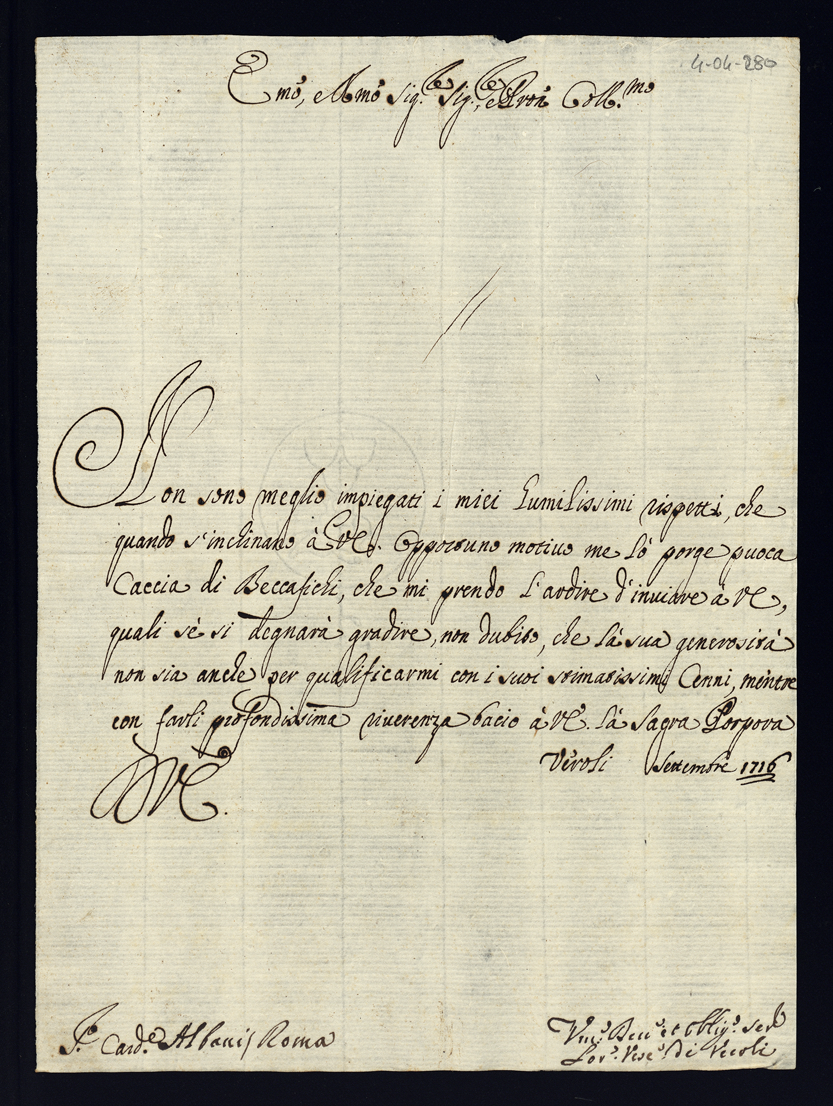 4-04-280
Emo, e Rmo Sig.re Sig.re, e Pron Coll.mo
Non sono meglio impiegati i miei humilissimi rispetti, che
quando s'inchinano à VE. Opportuno motivo me lò porge puoca
Caccia di Beccafichi, che mi prendo l'ardire d'inviare à VE,
quali sè si degnarà gradire, non dubito, che là sua generosità
non sia anche per qualificarmi con i suoi stimatissimi Cenni, mentre
con farli profondissima riverenza bacio à VE. là Sagra Porpora
Veroli Settembre 1716
DVE.
Card.e Albani Roma
Vm.o Dev.o et Oblig.o
Lor.o Vesc.o di Veroli